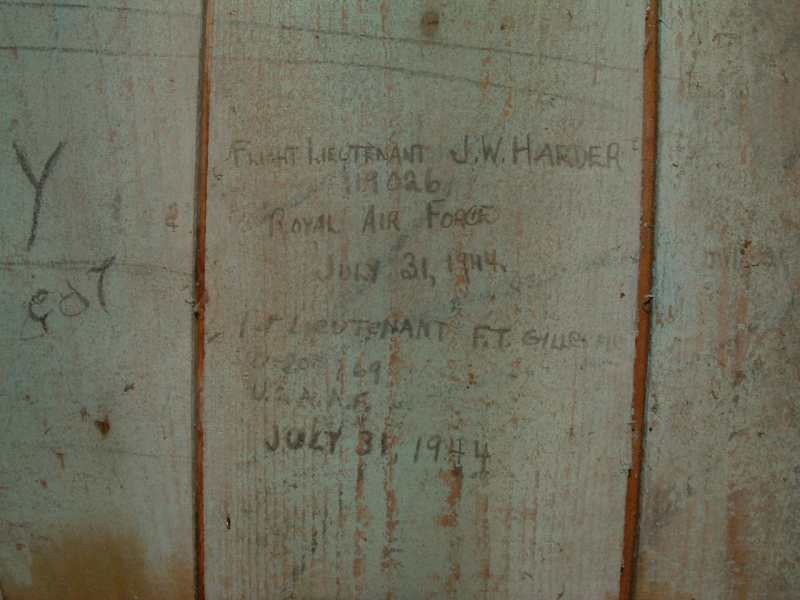 Y
FLIGHT LIEUTENANT J.W. HARDER
19026
ROYAL AIR FORCE
JULY 31, 1944.
1st LIEUTENANT F.T.
U.S.A.A.F.
JULY 31, 1944